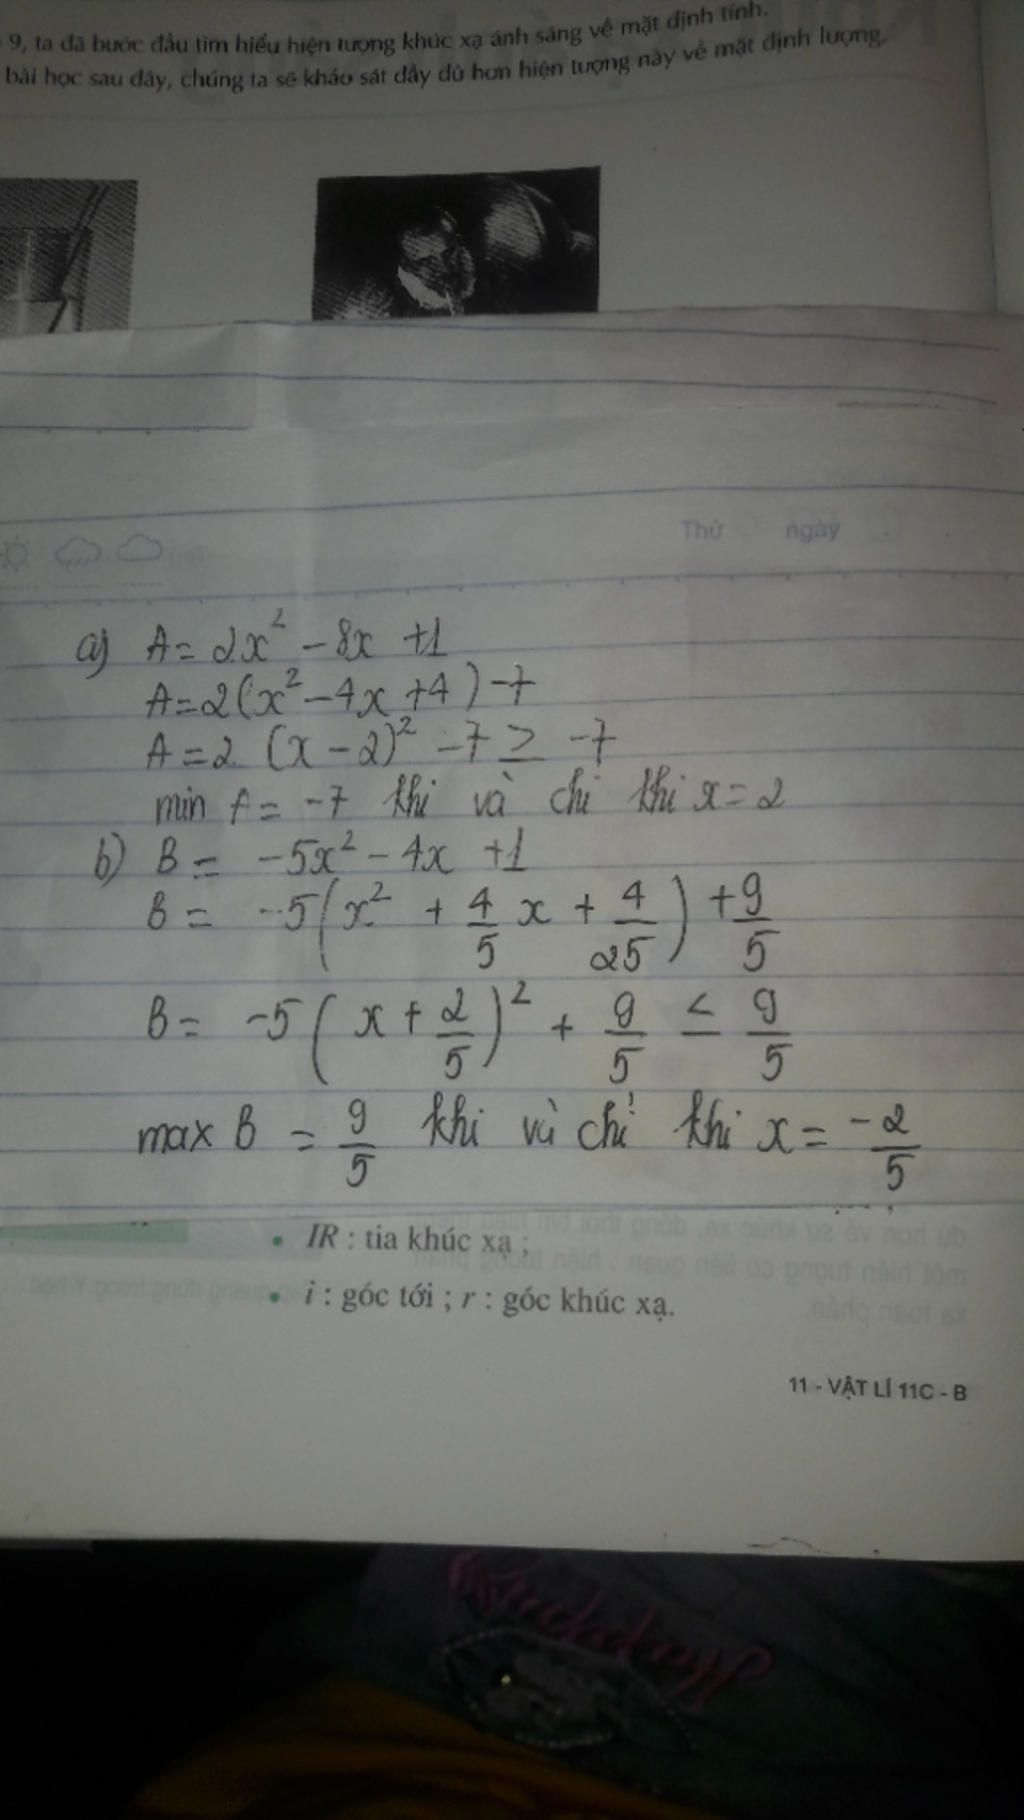 9, ta đã bước đầu tìm hiểu hiện tượng khúc xạ ánh sáng về mặt định tính.
bài học sau đây, chúng ta sẽ khảo sát đầy đủ hơn hiện tượng này về mặt định lượng.
Thứ ngày
a) A = 2x² - 8x + 1
A = 2(x² - 4x + 4) - 7
A = 2 (x - 2)² - 7 ≥ -7
min A = -7 khi và chỉ khi x = 2
b) B = -5x² - 4x + 1
B = -5(x² + 4/5 x + 4/25) + 9/5
B = -5(x + 2/5)² + 9/5 ≤ 9/5
max B = 9/5 khi và chỉ khi x = -2/5
• IR : tia khúc xạ ;
• i : góc tới ; r : góc khúc xạ.
11 - VẬT LÍ 11C - B